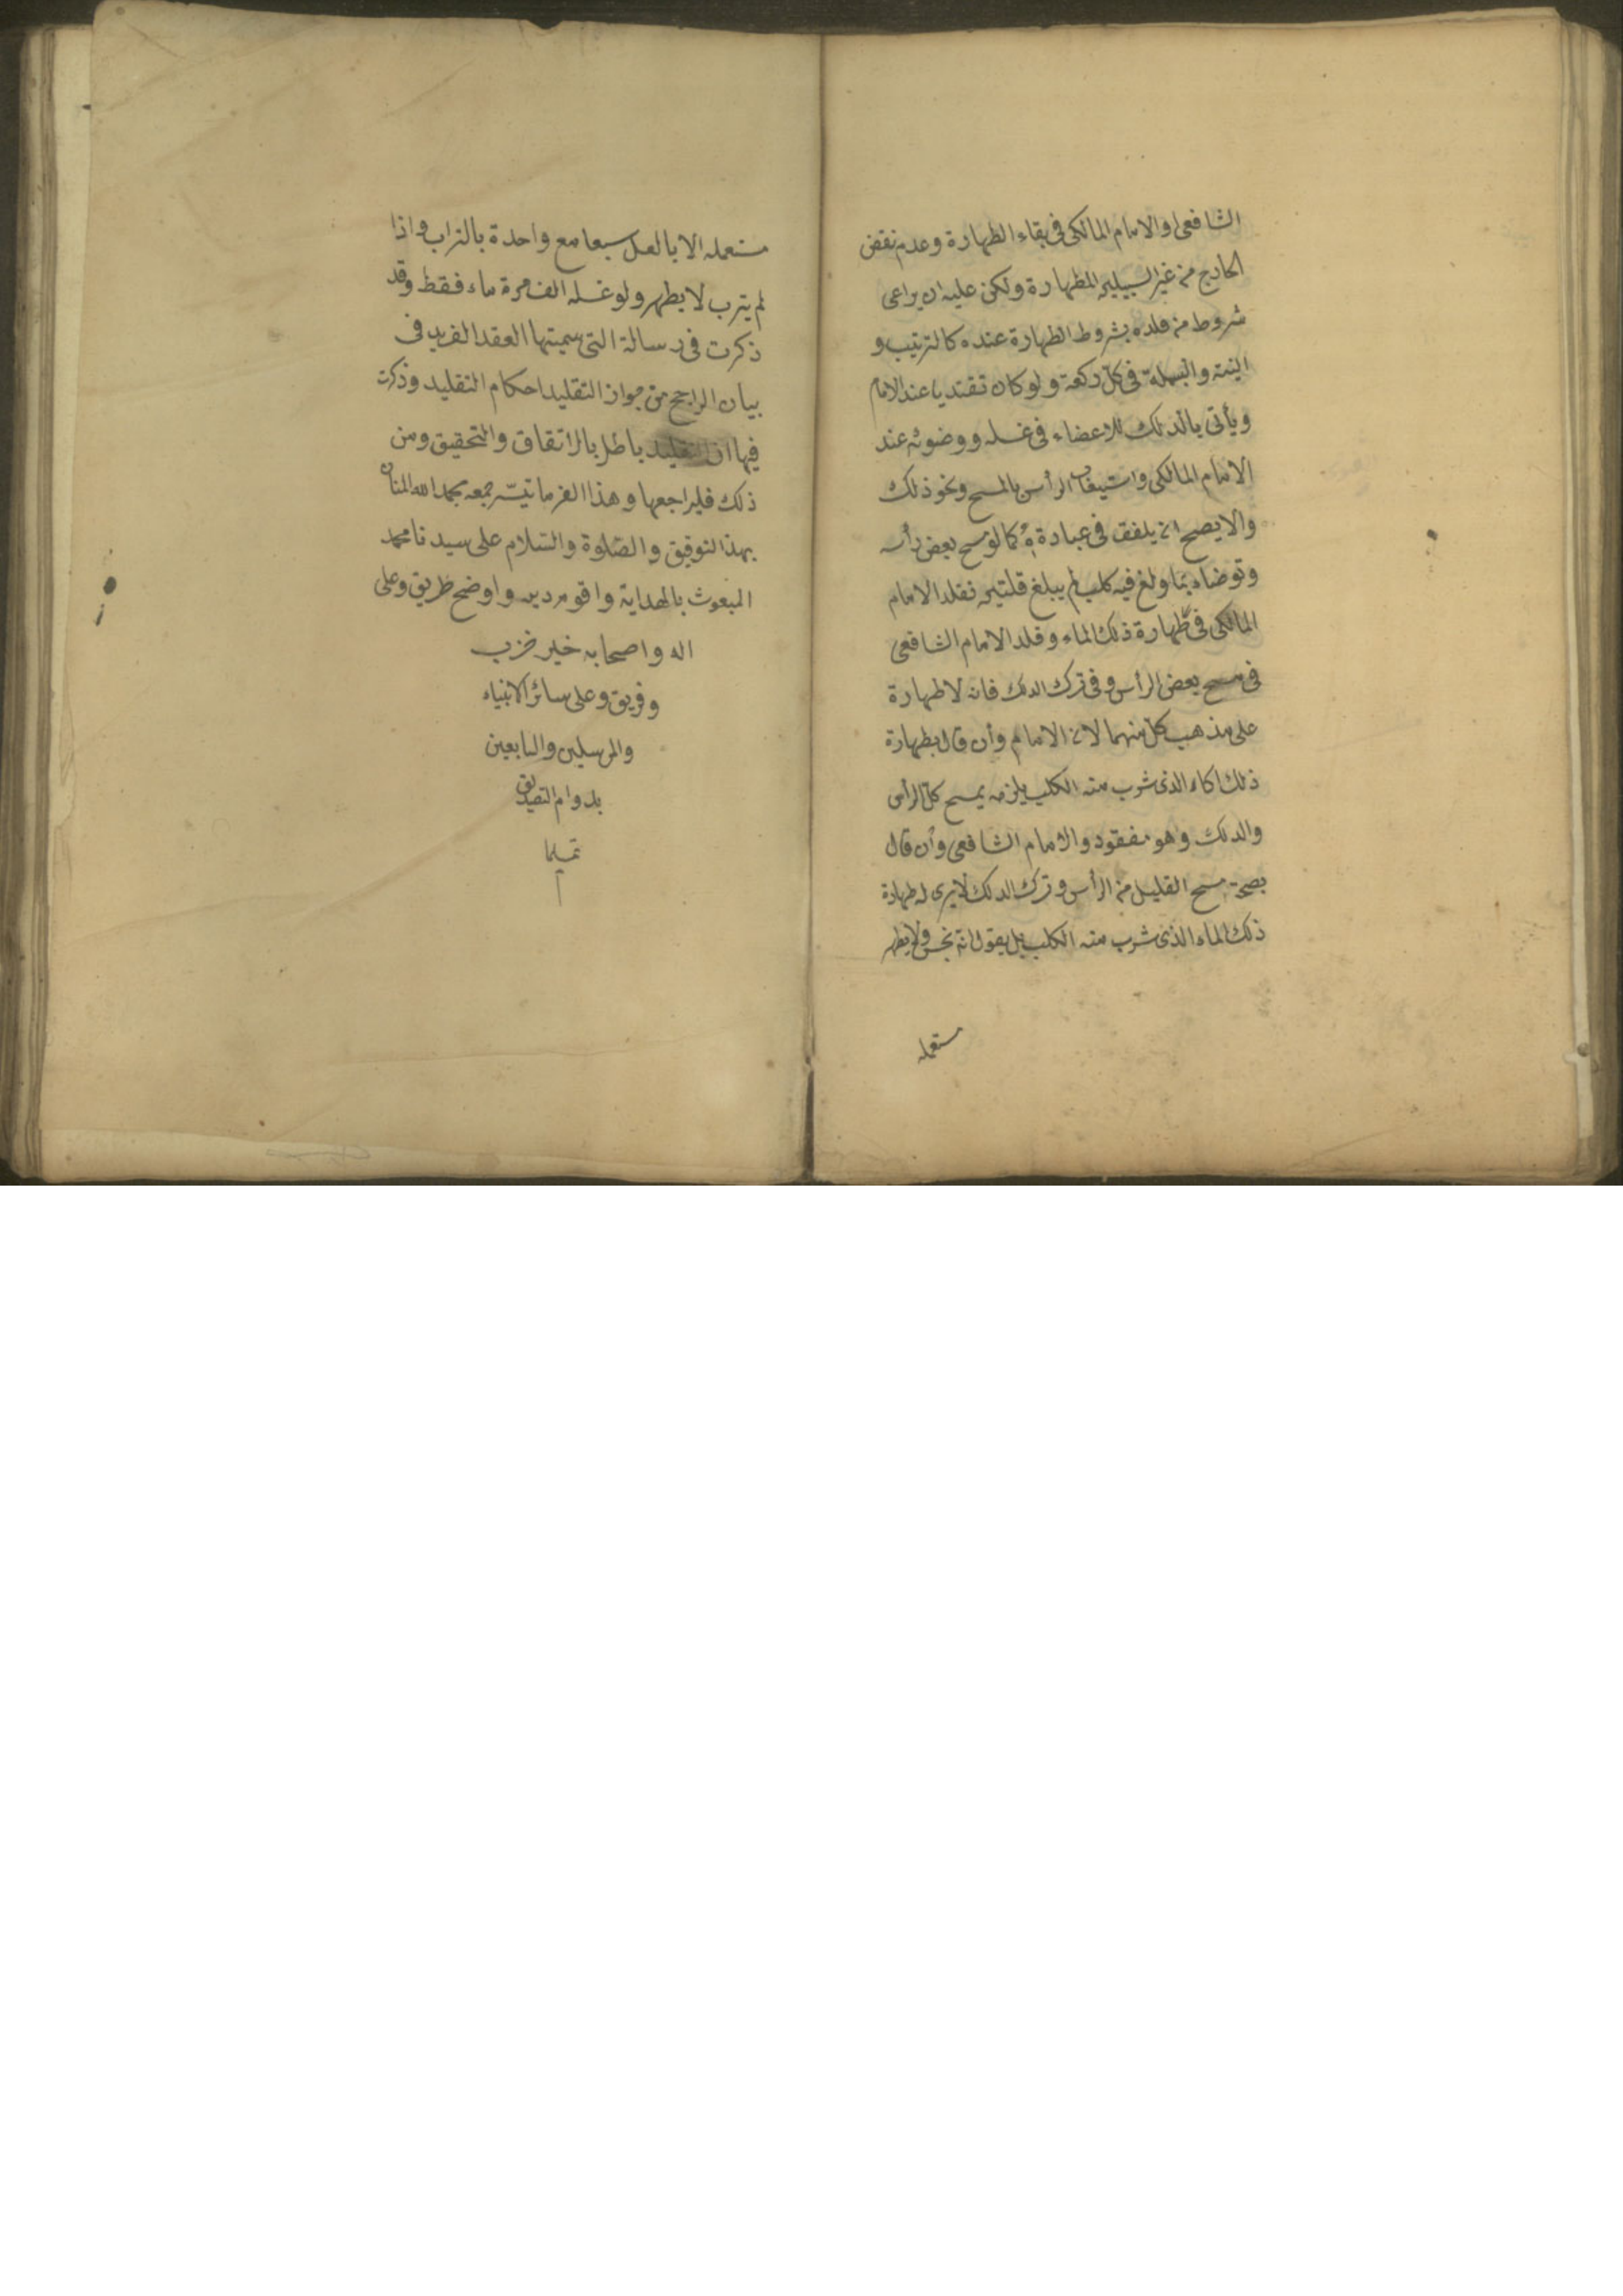 الشافعى والامام المالكى فى بقاء الطهارة وعدم نقض
الخارج من غير السبيلين للطهارة ولكن عليه ان يراعى
شروط من قلده بشروط الطهارة عنده كالترتيب و
النية والبسملة فى كل ركعة ولو كان تقتديا عند الامام
ويأتى بالدلك للاعضاء فى غسله ووضوئه عند
الامام المالكى واستيعاب الرأس بالمسح ونحو ذلك
والا يصح ان يلفق فى عبادة كما لو مسح بعض رأسه
وتوضاء بما ولغ فيه كلب لم يبلغ قلتين فقلد الامام
المالكى فى طهارة ذلك الماء وقلد الامام الشافعى
فى مسح بعض الرأس وفى ترك الدلك فانه لا طهارة
على مذهب كل منهما لان الامام وأن قال بطهارة
ذلك الماء الذى شرب منه الكلب يلزمه بمسح كل الرأس
والدلك وهو مفقود والامام الشافعى وأن قال
بصحة مسح القليل من الرأس وترك الدلك لا يرى له طهارة
ذلك الماء الذى شرب منه الكلب بل يقول انه نجس ولا يطهر
مستعمله
مستعمله الا بالغسل سبعا مع واحدة بالتراب واذا
لم يترب لا يطهر ولو غسله الف مرة ماء فقط وقد
ذكرت فى رسالة التى سميتها العقد الفريد فى
بيان الراجح من جواز التقليد احكام التقليد وذكرت
فيها ان التقليد باطل بالاتفاق والتحقيق ومن
ذلك فليراجعها وهذا اخر ما تيسّر جمعه بحمد الله المنان
بهذا التوفيق والصّلوة والسّلام على سيدنا محمد
المبعوث بالهداية واقوم دين واوضح طريق وعلى
اله واصحابه خير حزب
وفريق وعلى سائر الانبياء
والمرسلين والتابعين
بدوام التصديق